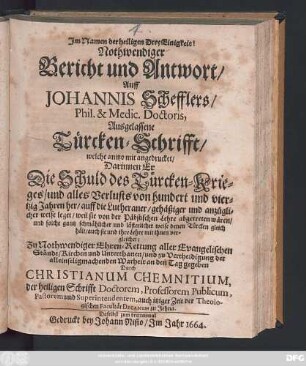 Im Namen der heiligen DreyEinigkeit!
Nothwendiger
Bericht und Antwort/
Auff
JOHANNIS Schefflers/
Phil. & Medic. Doctoris,
Ausgelassene
Türcken-Schrifft/
welche anito mit angedrucket/
Darinnen Er
Die Schuld des Türcken-Krie-
ges/und alles Verlusts von hundert und vier-
tzig Jahren her/ auff die Lutheraner/gehäßiger und anzügli-
cher weise leget/ weil sie von der Päbstischen Lehre abgetreten wären/
und solche gantz schmählicher und lästerlicher weise denen Türcken gleich
hält/auch sie und ihre Lehre mit ihnen ver-
gleichet;
Zu Nothwendiger Ehren-Rettung aller Evangelischen
Stände/Kirchen und Unterthanen/ und zu Vertheidigung der
alleinseligmachenden Warheit an den Tag gegeben
Durch
CHRISTIANUM CHEMNITIUM,
der heiligen Schrifft Doctorem, Professorem Publicum,
Pastorem und Superintendentem, auch itziger Zeit der Theolo-
gischen Facultät Decanum zu Jehna.
Daselbst zum erstenmal
Gedruckt bey Johann Nisio/ Im Jahr 1664.